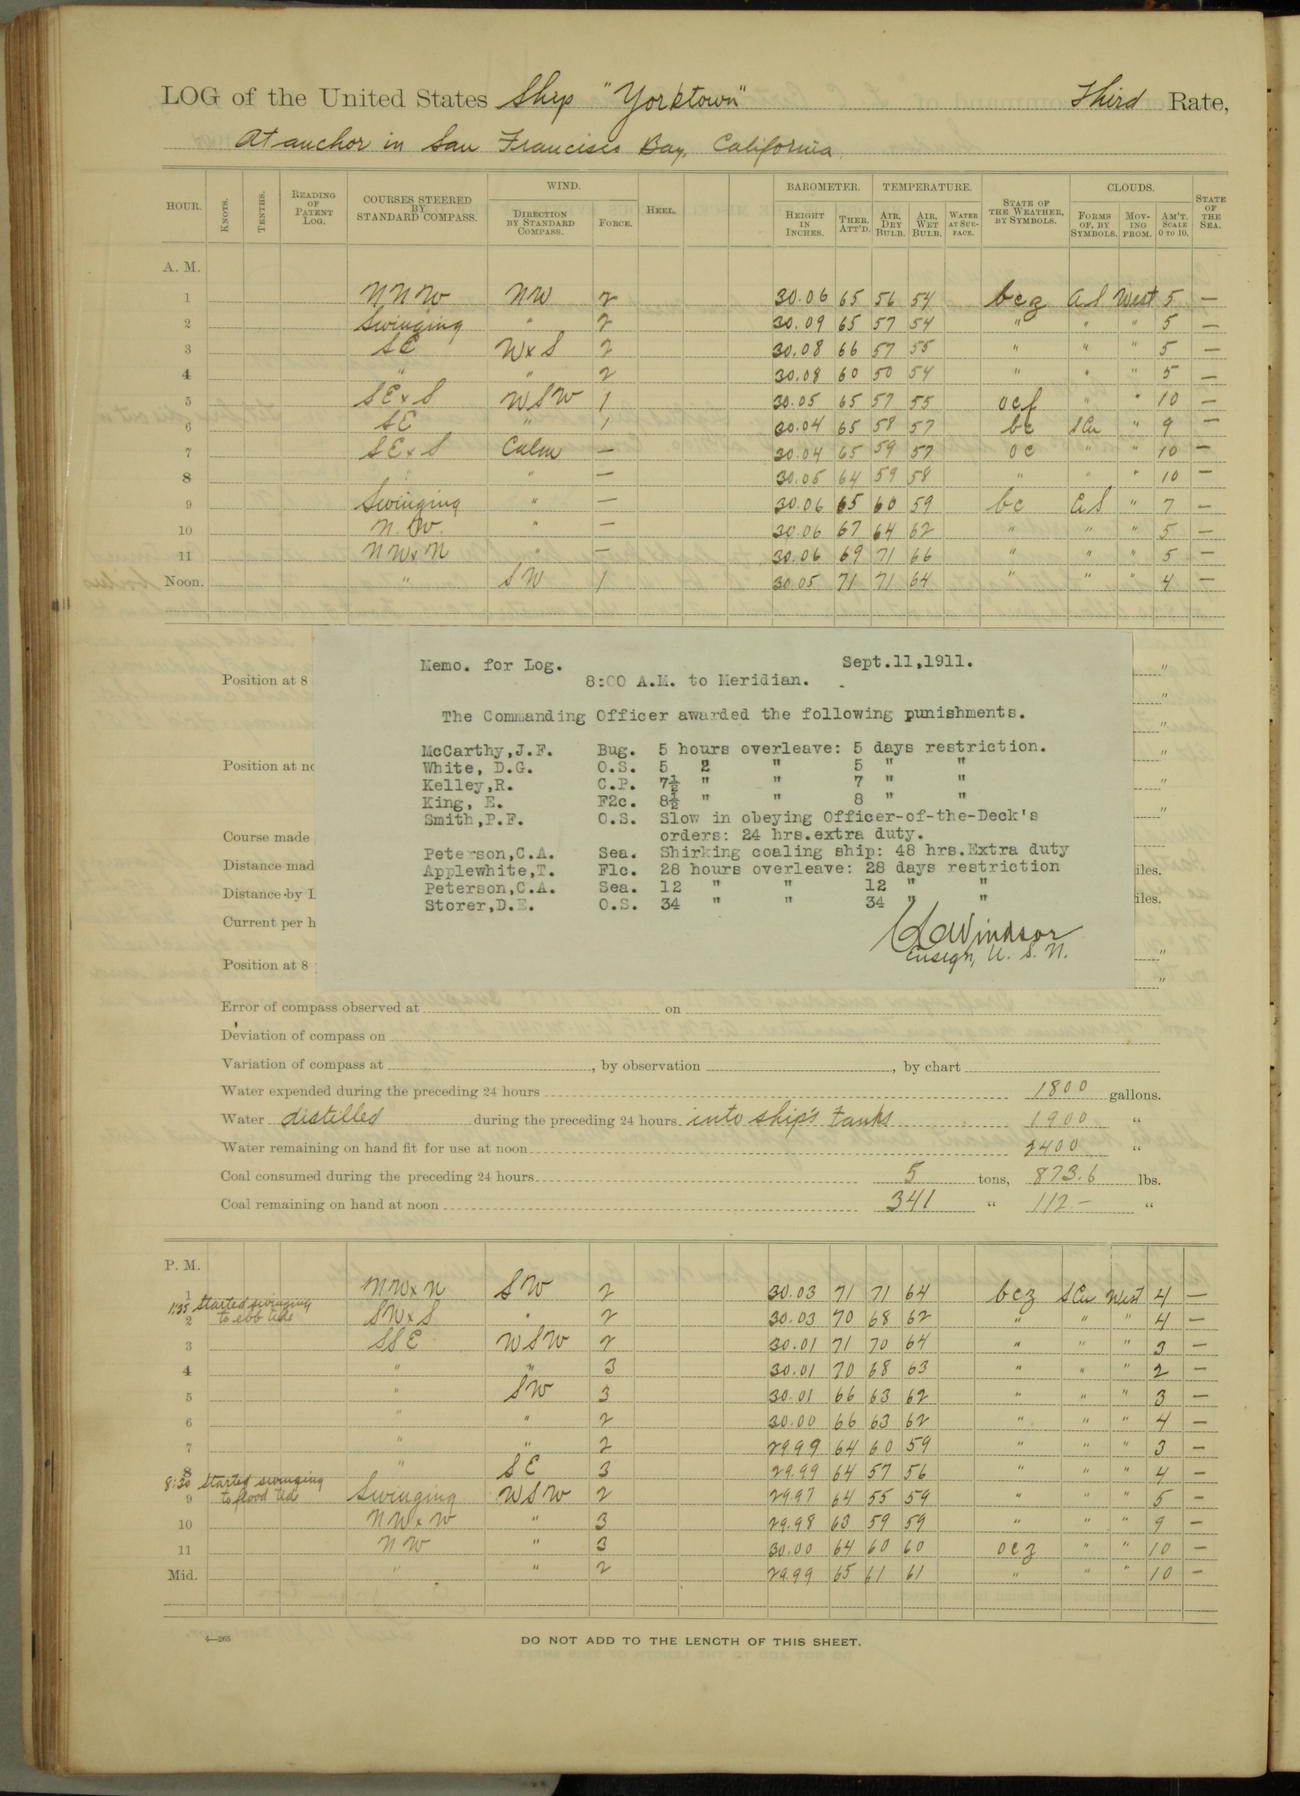 LOG of the United States Ship "Yorktown" Third Rate,
At anchor in San Francisco Bay, California
HOUR. KNOTS. TENTHS. READING OF PATENT LOG. COURSES STEERED BY STANDARD COMPASS. WIND. DIRECTION BY STANDARD COMPASS. FORCE. HEEL. BAROMETER. HEIGHT IN INCHES. THER. ATT'D. TEMPERATURE. AIR, DRY BULB. AIR, WET BULB. WATER AT SURFACE. STATE OF THE WEATHER, BY SYMBOLS. CLOUDS. FORMS OF, BY SYMBOLS. MOVING FROM. AM'T. SCALE 0 TO 10. STATE OF THE SEA.
A. M.
1 NNW NW 2 30.06 65 56 54 bcz A S West 5 —
2 Swinging " 2 30.09 65 57 54 " " " 5 —
3 SE WxS 2 30.08 66 57 55 " " " 5 —
4 " " 2 30.08 60 50 54 " " " 5 —
5 SExS WSW 1 30.05 65 57 55 ocf " " 10 —
6 SE " 1 30.04 65 58 57 bc SCu " 9 —
7 SExS Calm — 30.04 65 59 57 oc " " 10 —
8 " " — 30.05 64 59 58 " " " 10 —
9 Swinging " — 30.06 65 60 59 bc A S " 7 —
10 N.W. " — 30.06 67 64 62 " " " 5 —
11 NWxN " — 30.06 69 71 66 " " " 5 —
Noon. " SW 1 30.05 71 71 64 " " " 4 —
Memo. for Log. Sept.11,1911.
8:00 A.M. to Meridian.
The Commanding Officer awarded the following punishments.
McCarthy,J.F. Bug. 5 hours overleave: 5 days restriction.
White, D.G. O.S. 5 2 " 5 " "
Kelley,R. C.P. 7½ " " 7 " "
King, E. F2c. 8½ " " 8 " "
Smith,P.F. O.S. Slow in obeying Officer-of-the-Deck's
orders: 24 hrs.extra duty.
Peterson,C.A. Sea. Shirking coaling ship: 48 hrs.Extra duty
Applewhite,T. F1c. 28 hours overleave: 28 days restriction
Peterson,C.A. Sea. 12 " " 12 " "
Storer,D.E. O.S. 34 " " 34 " "
Windsor
Ensign, U. S. N.
Position at 8
Position at no
Course made
Distance mad iles.
Distance by L iles.
Current per h
Position at 8
Error of compass observed at on
Deviation of compass on
Variation of compass at , by observation , by chart
Water expended during the preceding 24 hours 1800 gallons.
Water distilled during the preceding 24 hours into ship's tanks 1900 "
Water remaining on hand fit for use at noon 2400 "
Coal consumed during the preceding 24 hours 5 tons, 873.6 lbs.
Coal remaining on hand at noon 341 " 112.- "
P. M.
1 NWxN SW 2 30.03 71 71 64 bcz SCu West 4 —
1:35 started swinging
to ebb tide
2 SWxS " 2 30.03 70 68 62 " " " 4 —
3 SSE WSW 2 30.01 71 70 64 " " " 3 —
4 " " 3 30.01 70 68 63 " " " 2 —
5 " SW 3 30.01 66 63 62 " " " 3 —
6 " " 2 30.00 66 63 62 " " " 4 —
7 " " 2 29.99 64 60 59 " " " 3 —
8 " SE 3 29.99 64 57 56 " " " 4 —
8:30 started swinging
to flood tid
9 Swinging WSW 2 29.97 64 55 59 " " " 5 —
10 NWxW " 3 29.98 63 59 59 " " " 9 —
11 NW " 3 30.00 64 60 60 ocz " " 10 —
Mid. " " 2 29.99 65 61 61 " " " 10 —
4—265
DO NOT ADD TO THE LENGTH OF THIS SHEET.